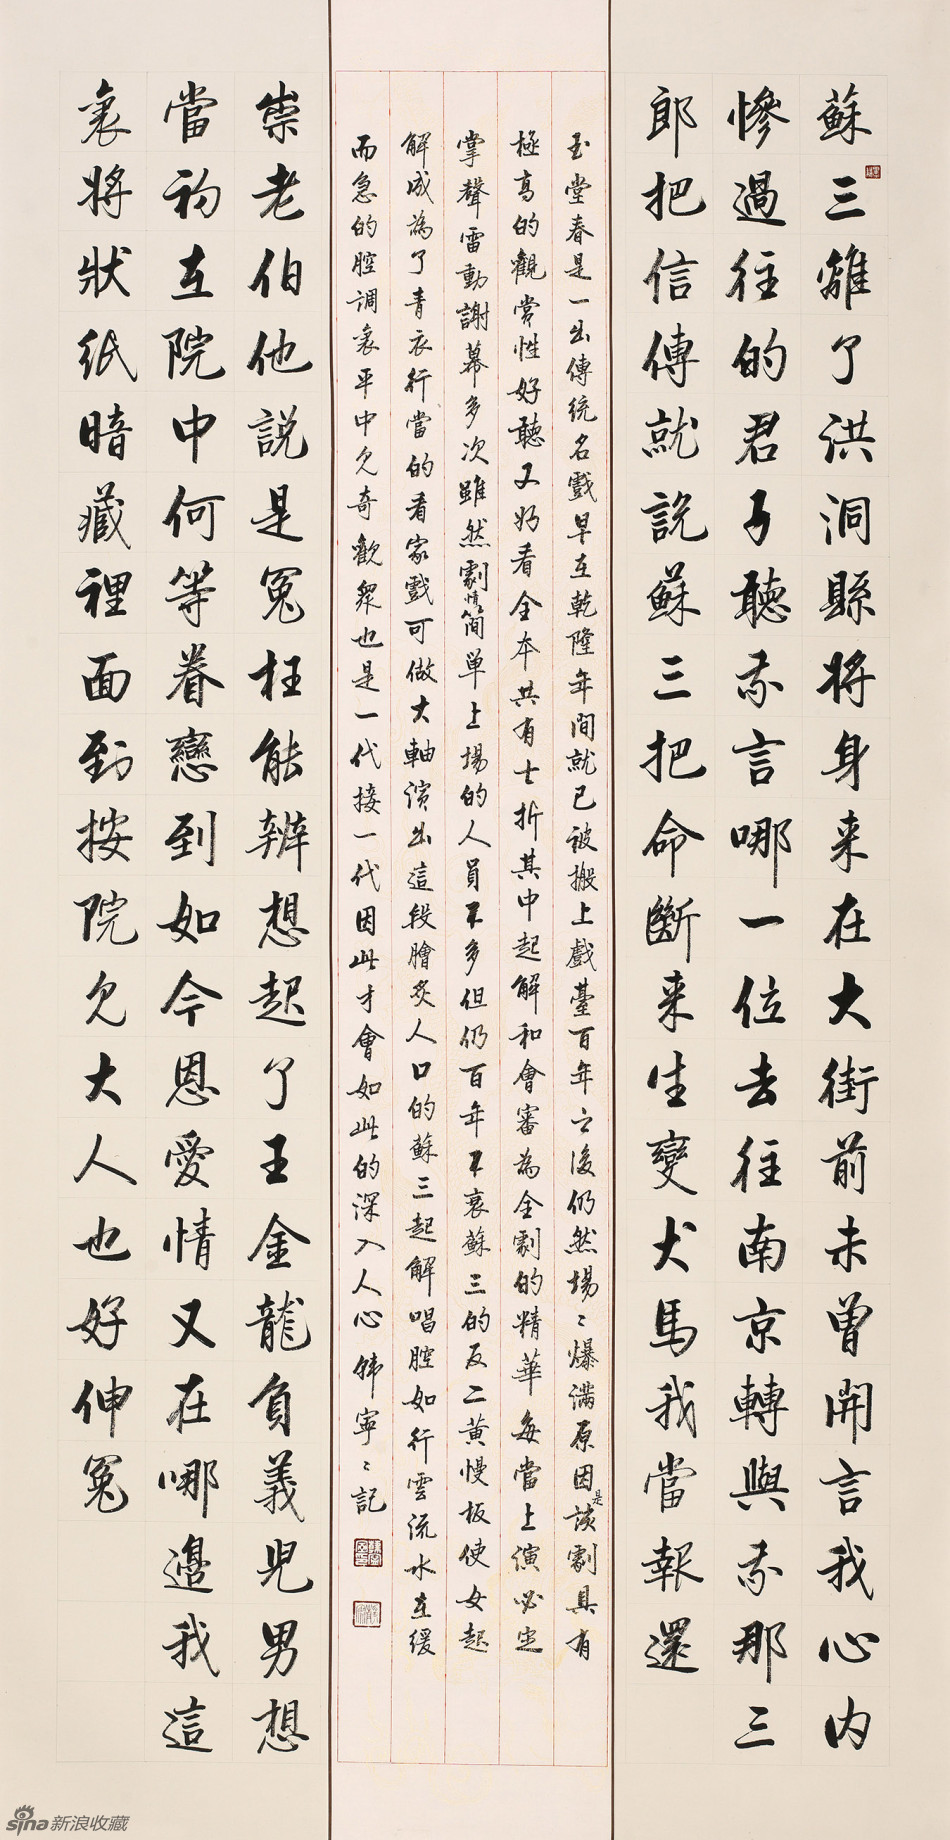 蘇三離了洪洞縣將身来在大街前未曾開言我心内
慘過往的君子聽我言哪一位去往南京轉與我那三
郎把信傳就説蘇三把命斷来生變犬馬我當報還
玉堂春是一出傳統名戲早在乾隆年間就已被搬上戲臺百年之後仍然場〻爆滿原因是該劇具有
極高的觀賞性好聽又好看全本共有士折其中起解和會審為全劇的精華每當上演必定
掌聲雷動謝幕多次雖然劇情簡単上場的人員不多但仍百年不衰蘇三的反二黄慢板使女起
解成為了青衣行當的看家戲可做大軸演出這段膾炙人口的蘇三起解唱腔如行雲流水在緩
而急的腔調裏平中見奇歡衆也是一代接一代因此才會如此的深入人心韩寧〻記
崇老伯他説是冤枉能辨想起了王金龍負義兒男想
當初在院中何等眷戀到如今恩愛情又在哪邊我這
裏將狀紙暗藏裡面到按院見大人也好伸冤
sina新浪收藏